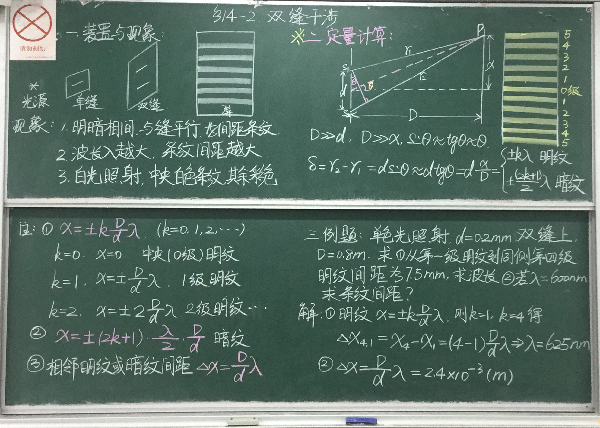 §14-2 双缝干涉
一 装置与现象:
光源 单缝 双缝
现象: 1. 明暗相间、与缝平行、等间距条纹
2. 波长λ越大, 条纹间距越大
3. 白光照射, 中央白色条纹, 其余彩色
※二. 定量计算:
P
r₁
r₂
x
S₁
d
θ
D
5
4
3
2
1
0级
1
2
3
4
5
D≫d, D≫x, sinθ≈tgθ≈θ
δ=r₂-r₁=dsinθ≈dtgθ=d x/D={±kλ 明纹
±(2k+1)/2 λ 暗纹
注: ① x=±k D/d λ (k=0,1,2,…)
k=0, x=0 中央(0级)明纹
k=1, x=±D/d λ, 1级明纹
k=2, x=±2 D/d λ 2级明纹…
② x=±(2k+1)·λ/2·D/d 暗纹
③ 相邻明纹或暗纹间距 Δx=D/d λ
三. 例题: 单色光照射 d=0.2mm 双缝上,
D=0.8m. 求①从第一级明纹到同侧第四级
明纹间距为7.5mm, 求波长 ②若λ=600nm
求条纹间距?
解: ①明纹 x=±k D/d λ, 则k=1, k=4得
Δx₄,₁=x₄-x₁=(4-1)D/d λ⇒λ=625nm
② Δx=D/d λ=2.4×10⁻³(m)